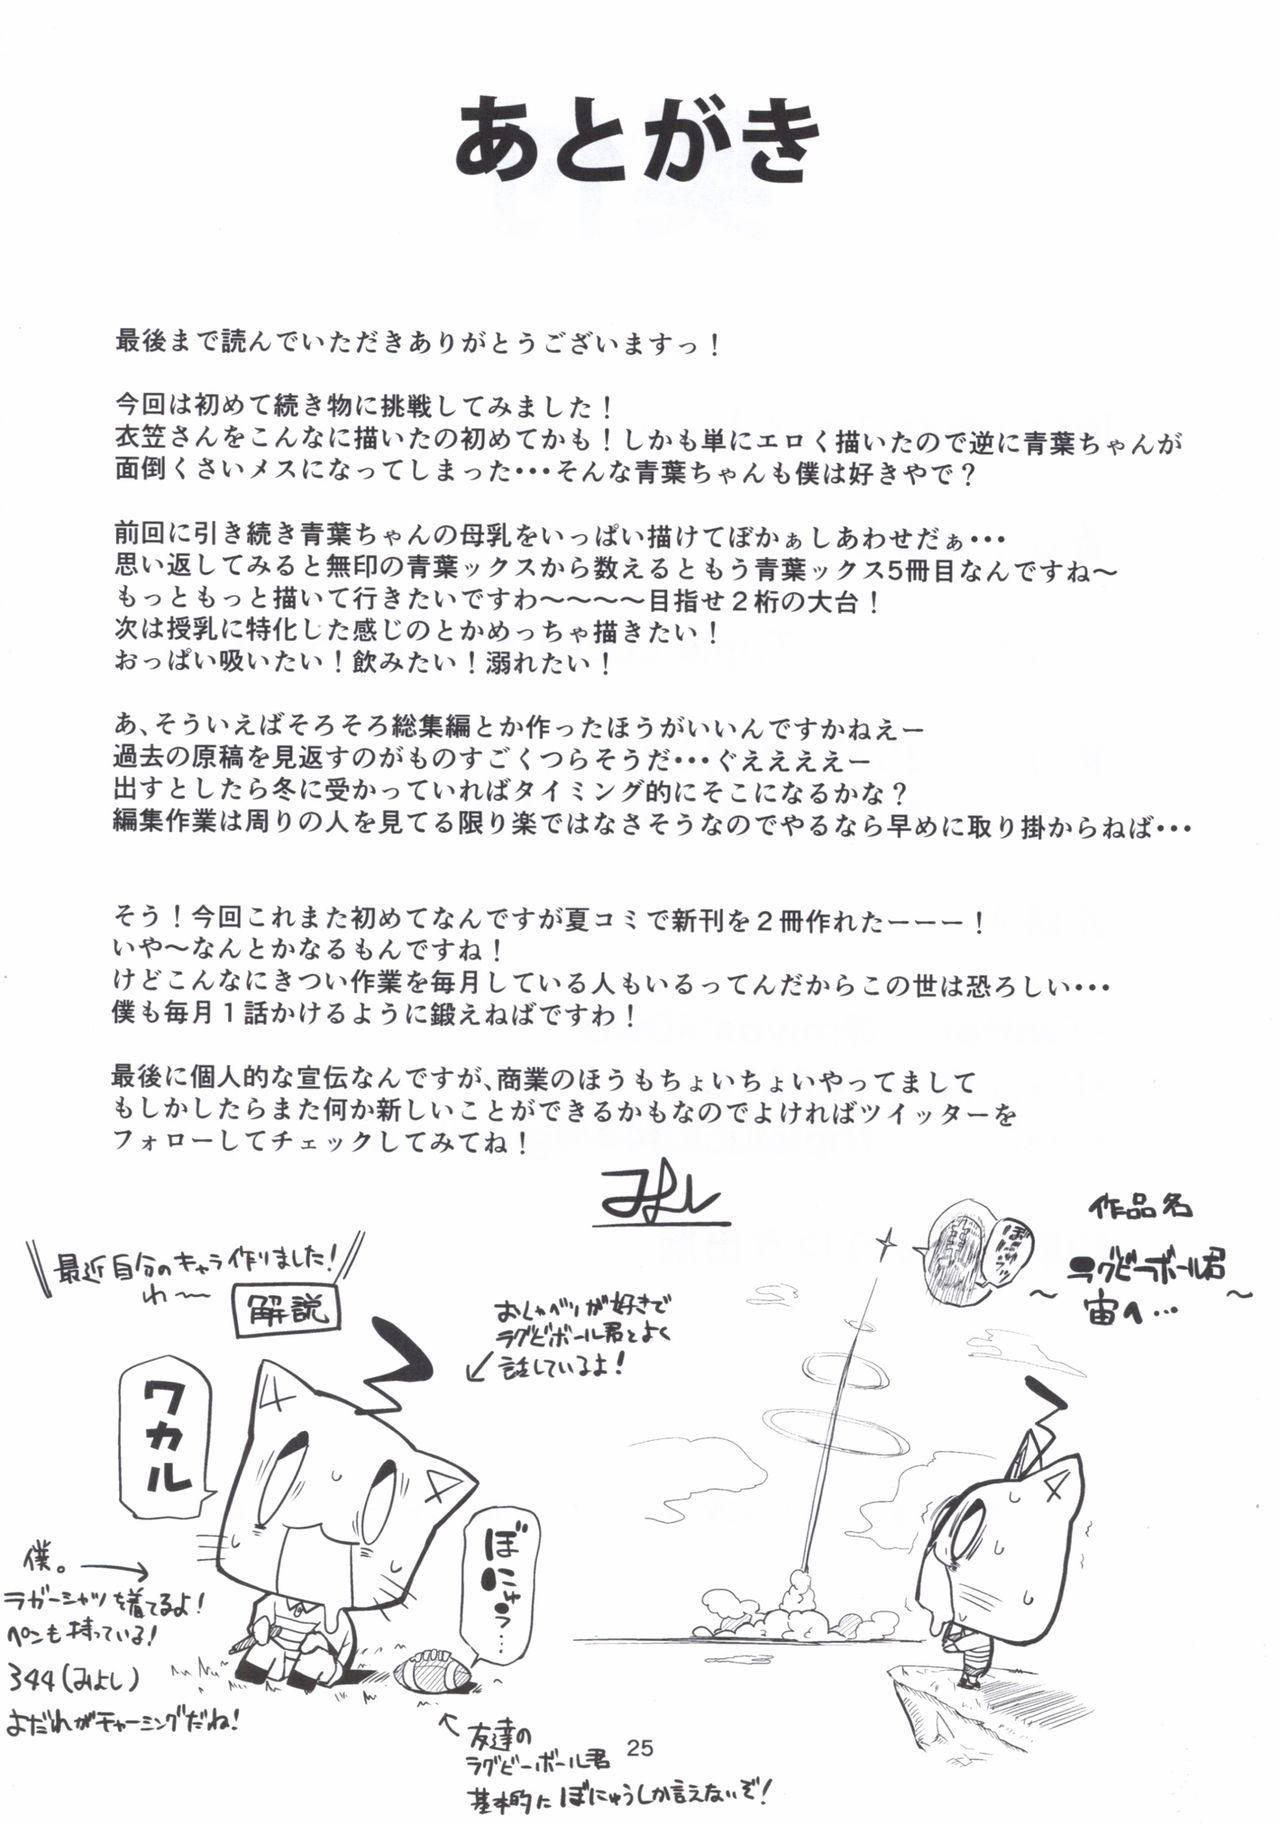 あとがき
最後まで読んでいただきありがとうございますっ！
今回は初めて続き物に挑戦してみました！
衣笠さんをこんなに描いたの初めてかも！しかも単にエロく描いたので逆に青葉ちゃんが
面倒くさいメスになってしまった・・・そんな青葉ちゃんも僕は好きやで？
前回に引き続き青葉ちゃんの母乳をいっぱい描けてぼかぁしあわせだぁ・・・
思い返してみると無印の青葉ックスから数えるともう青葉ックス5冊目なんですね～
もっともっと描いて行きたいですわ～～～～目指せ２桁の大台！
次は授乳に特化した感じのとかめっちゃ描きたい！
おっぱい吸いたい！飲みたい！溺れたい！
あ、そういえばそろそろ総集編とか作ったほうがいいんですかねえー
過去の原稿を見返すのがものすごくつらそうだ・・・ぐええええー
出すとしたら冬に受かっていればタイミング的にそこになるかな？
編集作業は周りの人を見てる限り楽ではなさそうなのでやるなら早めに取り掛からねば・・・
そう！今回これまた初めてなんですが夏コミで新刊を２冊作れたーーー！
いや～なんとかなるもんですね！
けどこんなにきつい作業を毎月している人もいるってんだからこの世は恐ろしい・・・
僕も毎月１話かけるように鍛えねばですわ！
最後に個人的な宣伝なんですが、商業のほうもちょいちょいやってまして
もしかしたらまた何か新しいことができるかもなのでよければツイッターを
フォローしてチェックしてみてね！
みよし
最近自分のキャラ作りました！
わ～
解説
おしゃべりが好きで
ラグビーボール君とよく
話しているよ！
ワカル
ぼにゅう…
僕。
ラガーシャツを着てるよ！
ペンも持っている！
344(みよし)
よだれがチャーミングだね！
友達の
ラグビーボール君
基本的にぼにゅうしか言えないぞ！
作品名
～ラグビーボール君
宙へ…～
25